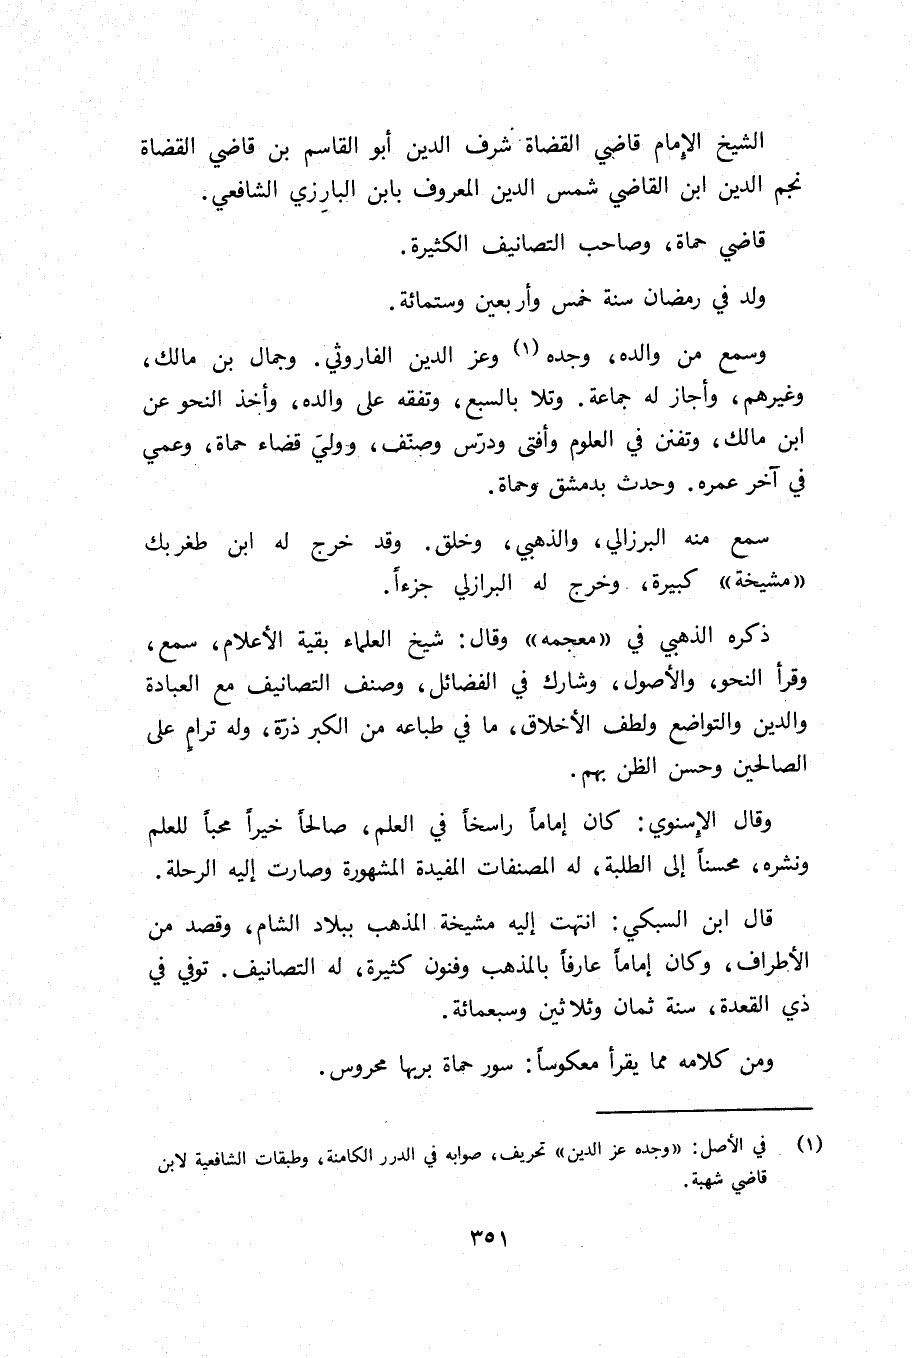 الشيخ الإمام قاضي القضاة شرف الدين أبو القاسم بن قاضي القضاة
نجم الدين ابن القاضي شمس الدين المعروف بابن البارِزي الشافعي.
قاضي حماة، وصاحب التصانيف الكثيرة.
ولد في رمضان سنة خمس وأربعين وستمائة.
وسمع من والده، وجده (١) وعز الدين الفاروثي. وجمال بن مالك،
وغيرهم، وأجاز له جماعة. وتلا بالسبع، وتفقه على والده، وأخذ النحو عن
ابن مالك، وتفنن في العلوم وأفتى ودرّس وصنّف، ووليَ قضاء حماة، وعمي
في آخر عمره. وحدث بدمشق وحماة.
سمع منه البرزالي، والذهبي، وخلق. وقد خرج له ابن طغربك
«مشيخة» كبيرة، وخرج له البرازلي جزءاً.
ذكره الذهبي في «معجمه» وقال: شيخ العلماء بقية الأعلام، سمع،
وقرأ النحو، والأصول، وشارك في الفضائل، وصنف التصانيف مع العبادة
والدين والتواضع ولطف الأخلاق، ما في طباعه من الكبر ذرّة، وله ترامٍ على
الصالحين وحسن الظن بهم.
وقال الإسنوي: كان إماماً راسخاً في العلم، صالحاً خيراً محباً للعلم
ونشره، محسناً إلى الطلبة، له المصنفات المفيدة المشهورة وصارت إليه الرحلة.
قال ابن السبكي: انتهت إليه مشيخة المذهب ببلاد الشام، وقصد من
الأطراف، وكان إماماً عارفاً بالمذهب وفنون كثيرة، له التصانيف. توفي في
ذي القعدة، سنة ثمان وثلاثين وسبعمائة.
ومن كلامه مما يقرأ معكوساً: سور حماة بربها محروس.
(١) في الأصل: «وجده عز الدين» تحريف، صوابه في الدرر الكامنة، وطبقات الشافعية لابن
قاضي شهبة.
٣٥١